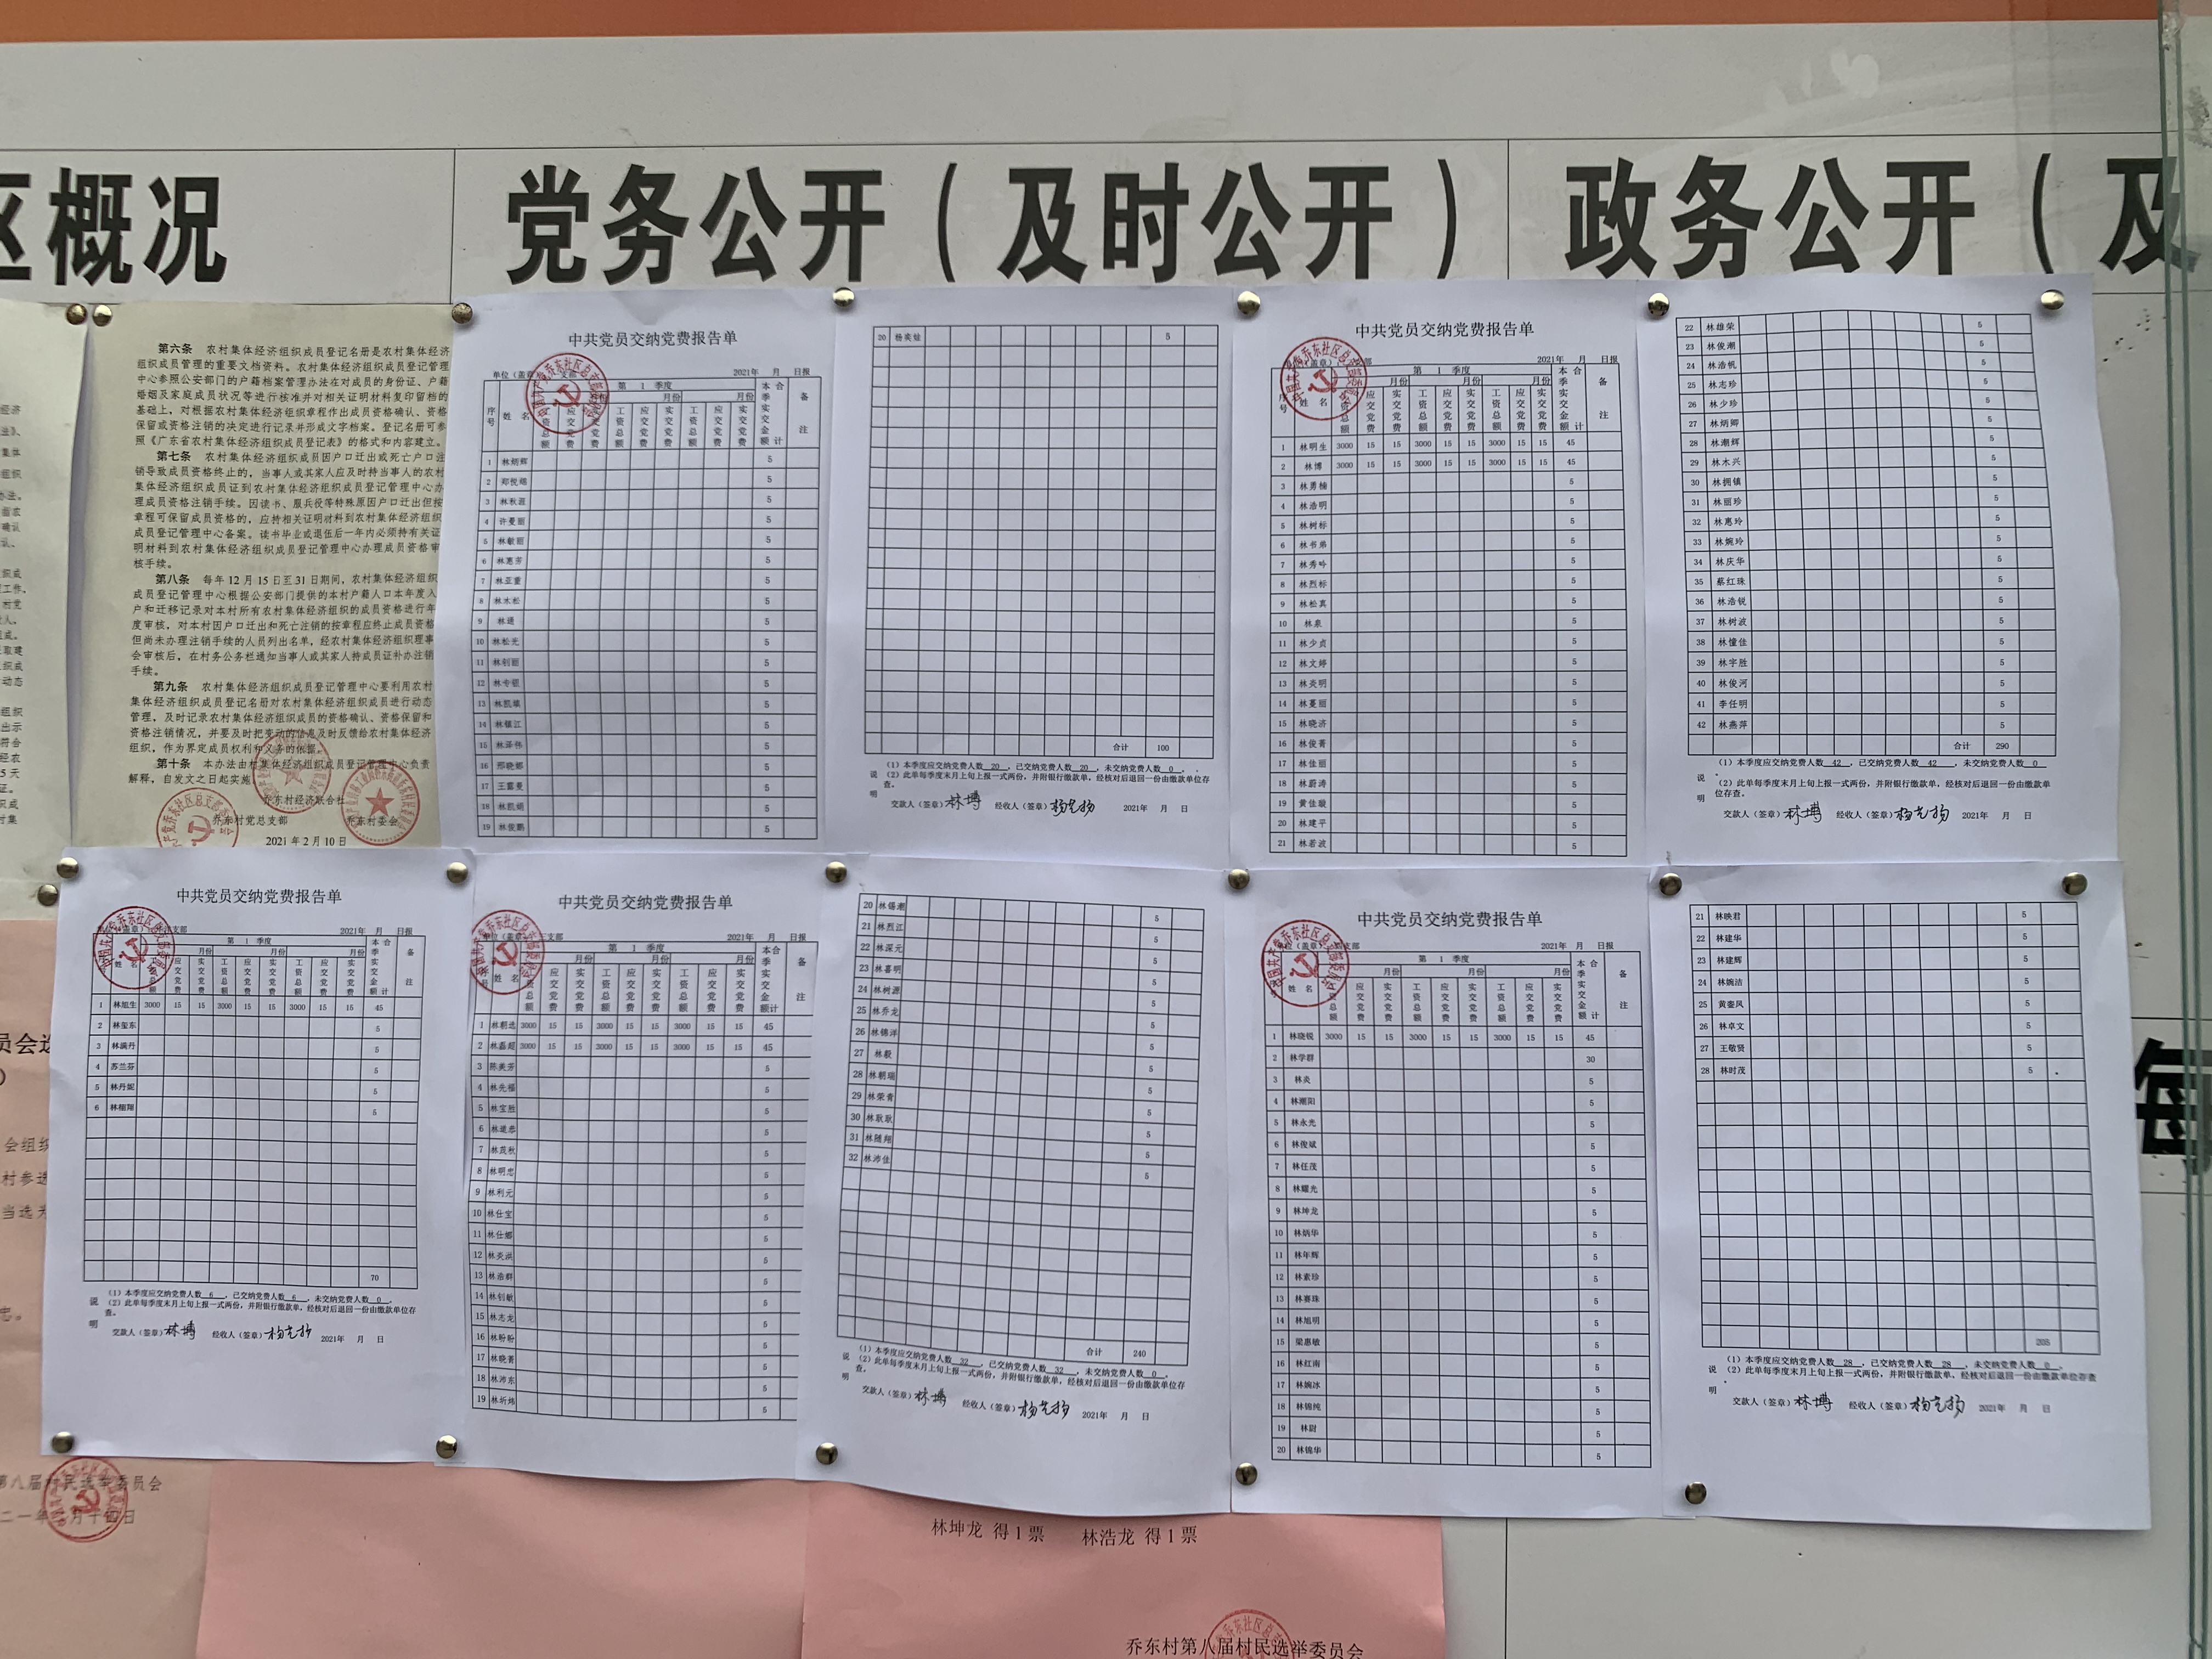 概况
党务公开（及时公开）
政务公开（及
第六条 农村集体经济组织成员登记名册是农村集体经济
组织成员管理的重要文档资料。农村集体经济组织成员登记管理
中心参照公安部门的户籍档案管理办法在对成员的身份证、户籍
婚姻及家庭成员状况等进行核准并对相关证明材料复印留档的
基础上，对根据农村集体经济组织章程作出成员资格确认、资格
保留或资格注销的决定进行记录并形成文字档案。登记名册可参
照《广东省农村集体经济组织成员登记表》的格式和内容建立。
第七条 农村集体经济组织成员因户口迁出或死亡户口注
销导致成员资格终止的，当事人或其家人应及时持当事人的农村
集体经济组织成员证到农村集体经济组织成员登记管理中心办
理成员资格注销手续。因读书、服兵役等特殊原因户口迁出但按
章程可保留成员资格的，应持相关证明材料到农村集体经济组织
成员登记管理中心备案。读书毕业或退伍后一年内必须持有关证
明材料到农村集体经济组织成员登记管理中心办理成员资格审
核手续。
第八条 每年 12 月 15 日至 31 日期间，农村集体经济组织
成员登记管理中心根据公安部门提供的本村户籍人口本年度入
户和迁移记录对本村所有农村集体经济组织的成员资格进行年
度审核，对本村因户口迁出和死亡注销的按章程应终止成员资格
但尚未办理注销手续的人员列出名单，经农村集体经济组织理事
会审核后，在村务公务栏通知当事人或其家人持成员证补办注销
手续。
第九条 农村集体经济组织成员登记管理中心要利用农村
集体经济组织成员登记名册对农村集体经济组织成员进行动态
管理，及时记录农村集体经济组织成员的资格确认、资格保留和
资格注销情况，并要及时把变动的信息及时反馈给农村集体经济
组织，作为界定成员权利和义务的依据。
第十条 本办法由村集体经济组织成员登记管理中心负责
解释，自发文之日起实施
乔东村经济联合社
乔东村党总支部 乔东村委会
2021 年 2 月 10 日
中共党员交纳党费报告单
2021年 月 日报
第 1 季度
序号 姓 名 工资总额 应交党费 实交党费 工资总额 应交党费 实交党费 工资总额 应交党费 实交党费 本季实交金额 合计 备注
1 林炳辉 5
2 5
3 5
4 许曼丽 5
5 林敏丽 5
6 林惠芳 5
7 林亚重 5
8 林木松 5
9 5
10 林松光 5
11 林创丽 5
12 5
13 5
14 林镇江 5
15 林泽伟 5
16 邢晓娜 5
17 5
18 5
19 林俊鹏 5
20 5
合计 100
（1）本季度应交纳党费人数 20 ，已交纳党费人数 20 ，未交纳党费人数 0 。
说明 （2）此单每季度末月上旬上报一式两份，并附银行缴款单，经核对后退回一份由缴款单位存
查。
交款人（签章）林博 经收人（签章） 2021年 月 日
中共党员交纳党费报告单
2021年 月 日报
第 1 季度
姓 名 工资总额 应交党费 实交党费 工资总额 应交党费 实交党费 工资总额 应交党费 实交党费 本季实交金额 合计 备注
1 林明生 3000 15 15 3000 15 15 3000 15 15 45
2 林博 3000 15 15 3000 15 15 3000 15 15 45
3 林勇楠 5
4 林浩明 5
5 林树标 5
6 林书弟 5
7 林秀吟 5
8 林烈标 5
9 林松真 5
10 林泉 5
11 林少贞 5
12 林文婷 5
13 林炎明 5
14 林夏丽 5
15 林晓济 5
16 林俊菁 5
17 林佳丽 5
18 林蔚涛 5
19 黄佳璇 5
20 林建平 5
21 林若波 5
22 林雄荣 5
23 林俊潮 5
24 林浩帆 5
25 林志珍 5
26 林少珍 5
27 林炳卿 5
28 林潮辉 5
29 林木兴 5
30 林拥镇 5
31 林丽珍 5
32 林惠玲 5
33 林婉玲 5
34 林庆华 5
35 蔡红珠 5
36 林浩锐 5
37 林树波 5
38 林憧佳 5
39 林宇胜 5
40 林俊河 5
41 李任明 5
42 林燕萍 5
合计 290
（1）本季度应交纳党费人数 42 ，已交纳党费人数 42 ，未交纳党费人数 0
说明 （2）此单每季度末月上旬上报一式两份，并附银行缴款单，经核对后退回一份由缴款单
位存查。
交款人（签章）林博 经收人（签章） 2021年 月 日
中共党员交纳党费报告单
2021年 月 日报
第 1 季度
姓 名 工资总额 应交党费 实交党费 工资总额 应交党费 实交党费 工资总额 应交党费 实交党费 本季实交金额 合计 备注
1 林旭生 3000 15 15 3000 15 15 3000 15 15 45
2 林玺东 5
3 林满丹 5
4 苏兰芬 5
5 林丹妮 5
6 林栩翔 5
70
（1）本季度应交纳党费人数 6 ，已交纳党费人数 6 ，未交纳党费人数 0 。
说明 （2）此单每季度末月上旬上报一式两份，并附银行缴款单，经核对后退回一份由缴款单位存
查。
交款人（签章）林博 经收人（签章） 2021年 月 日
中共党员交纳党费报告单
2021年 月 日报
第 1 季度
姓 名 工资总额 应交党费 实交党费 工资总额 应交党费 实交党费 工资总额 应交党费 实交党费 本季实交金额 合计 备注
1 林朝选 3000 15 15 3000 15 15 3000 15 15 45
2 林嘉超 3000 15 15 3000 15 15 3000 15 15 45
3 陈美芳 5
4 林先福 5
5 林宝胜 5
6 林道恭 5
7 林茂秋 5
8 林明忠 5
9 林利元 5
10 林仕宝 5
11 林仕娜 5
12 林炎洪 5
13 林浩群 5
14 林创敏 5
15 林志龙 5
16 林盼盼 5
17 林晓菁 5
18 林沛东 5
19 林圻炜 5
20 林锡潮 5
21 林烈江 5
22 林深元 5
23 林喜明 5
24 林树源 5
25 林乔龙 5
26 林锡洋 5
27 林毅 5
28 林朝瑞 5
29 林荣青 5
30 林耿耿 5
31 林随翔 5
32 林沛佳 5
合计 240
（1）本季度应交纳党费人数 32 ，已交纳党费人数 32 ，未交纳党费人数 0 。
说明 （2）此单每季度末月上旬上报一式两份，并附银行缴款单，经核对后退回一份由缴款单位存
查。
交款人（签章）林博 经收人（签章） 2021年 月 日
中共党员交纳党费报告单
2021年 月 日报
第 1 季度
姓 名 工资总额 应交党费 实交党费 工资总额 应交党费 实交党费 工资总额 应交党费 实交党费 本季实交金额 合计 备注
1 林晓锐 3000 15 15 3000 15 15 3000 15 15 45
2 林学群 30
3 林炎 5
4 林潮阳 5
5 林永光 5
6 林俊斌 5
7 林任茂 5
8 林耀光 5
9 林坤龙 5
10 林炳华 5
11 林年辉 5
12 林素珍 5
13 林赛珠 5
14 林旭明 5
15 梁惠敏 5
16 林红南 5
17 林婉冰 5
18 林锦纯 5
19 林尉 5
20 林锦华 5
21 林映君 5
22 林建华 5
23 林建辉 5
24 林婉洁 5
25 黄銮凤 5
26 林卓文 5
27 王敬贤 5
28 林时茂 5
205
（1）本季度应交纳党费人数 28 ，已交纳党费人数 28 ，未交纳党费人数 0 。
说明 （2）此单每季度末月上旬上报一式两份，并附银行缴款单，经核对后退回一份由缴款单位存查
。
交款人（签章）林博 经收人（签章） 2021年 月 日
第八届村民选举委员会
林坤龙 得 1 票 林浩龙 得 1 票
乔东村第八届村民选举委员会